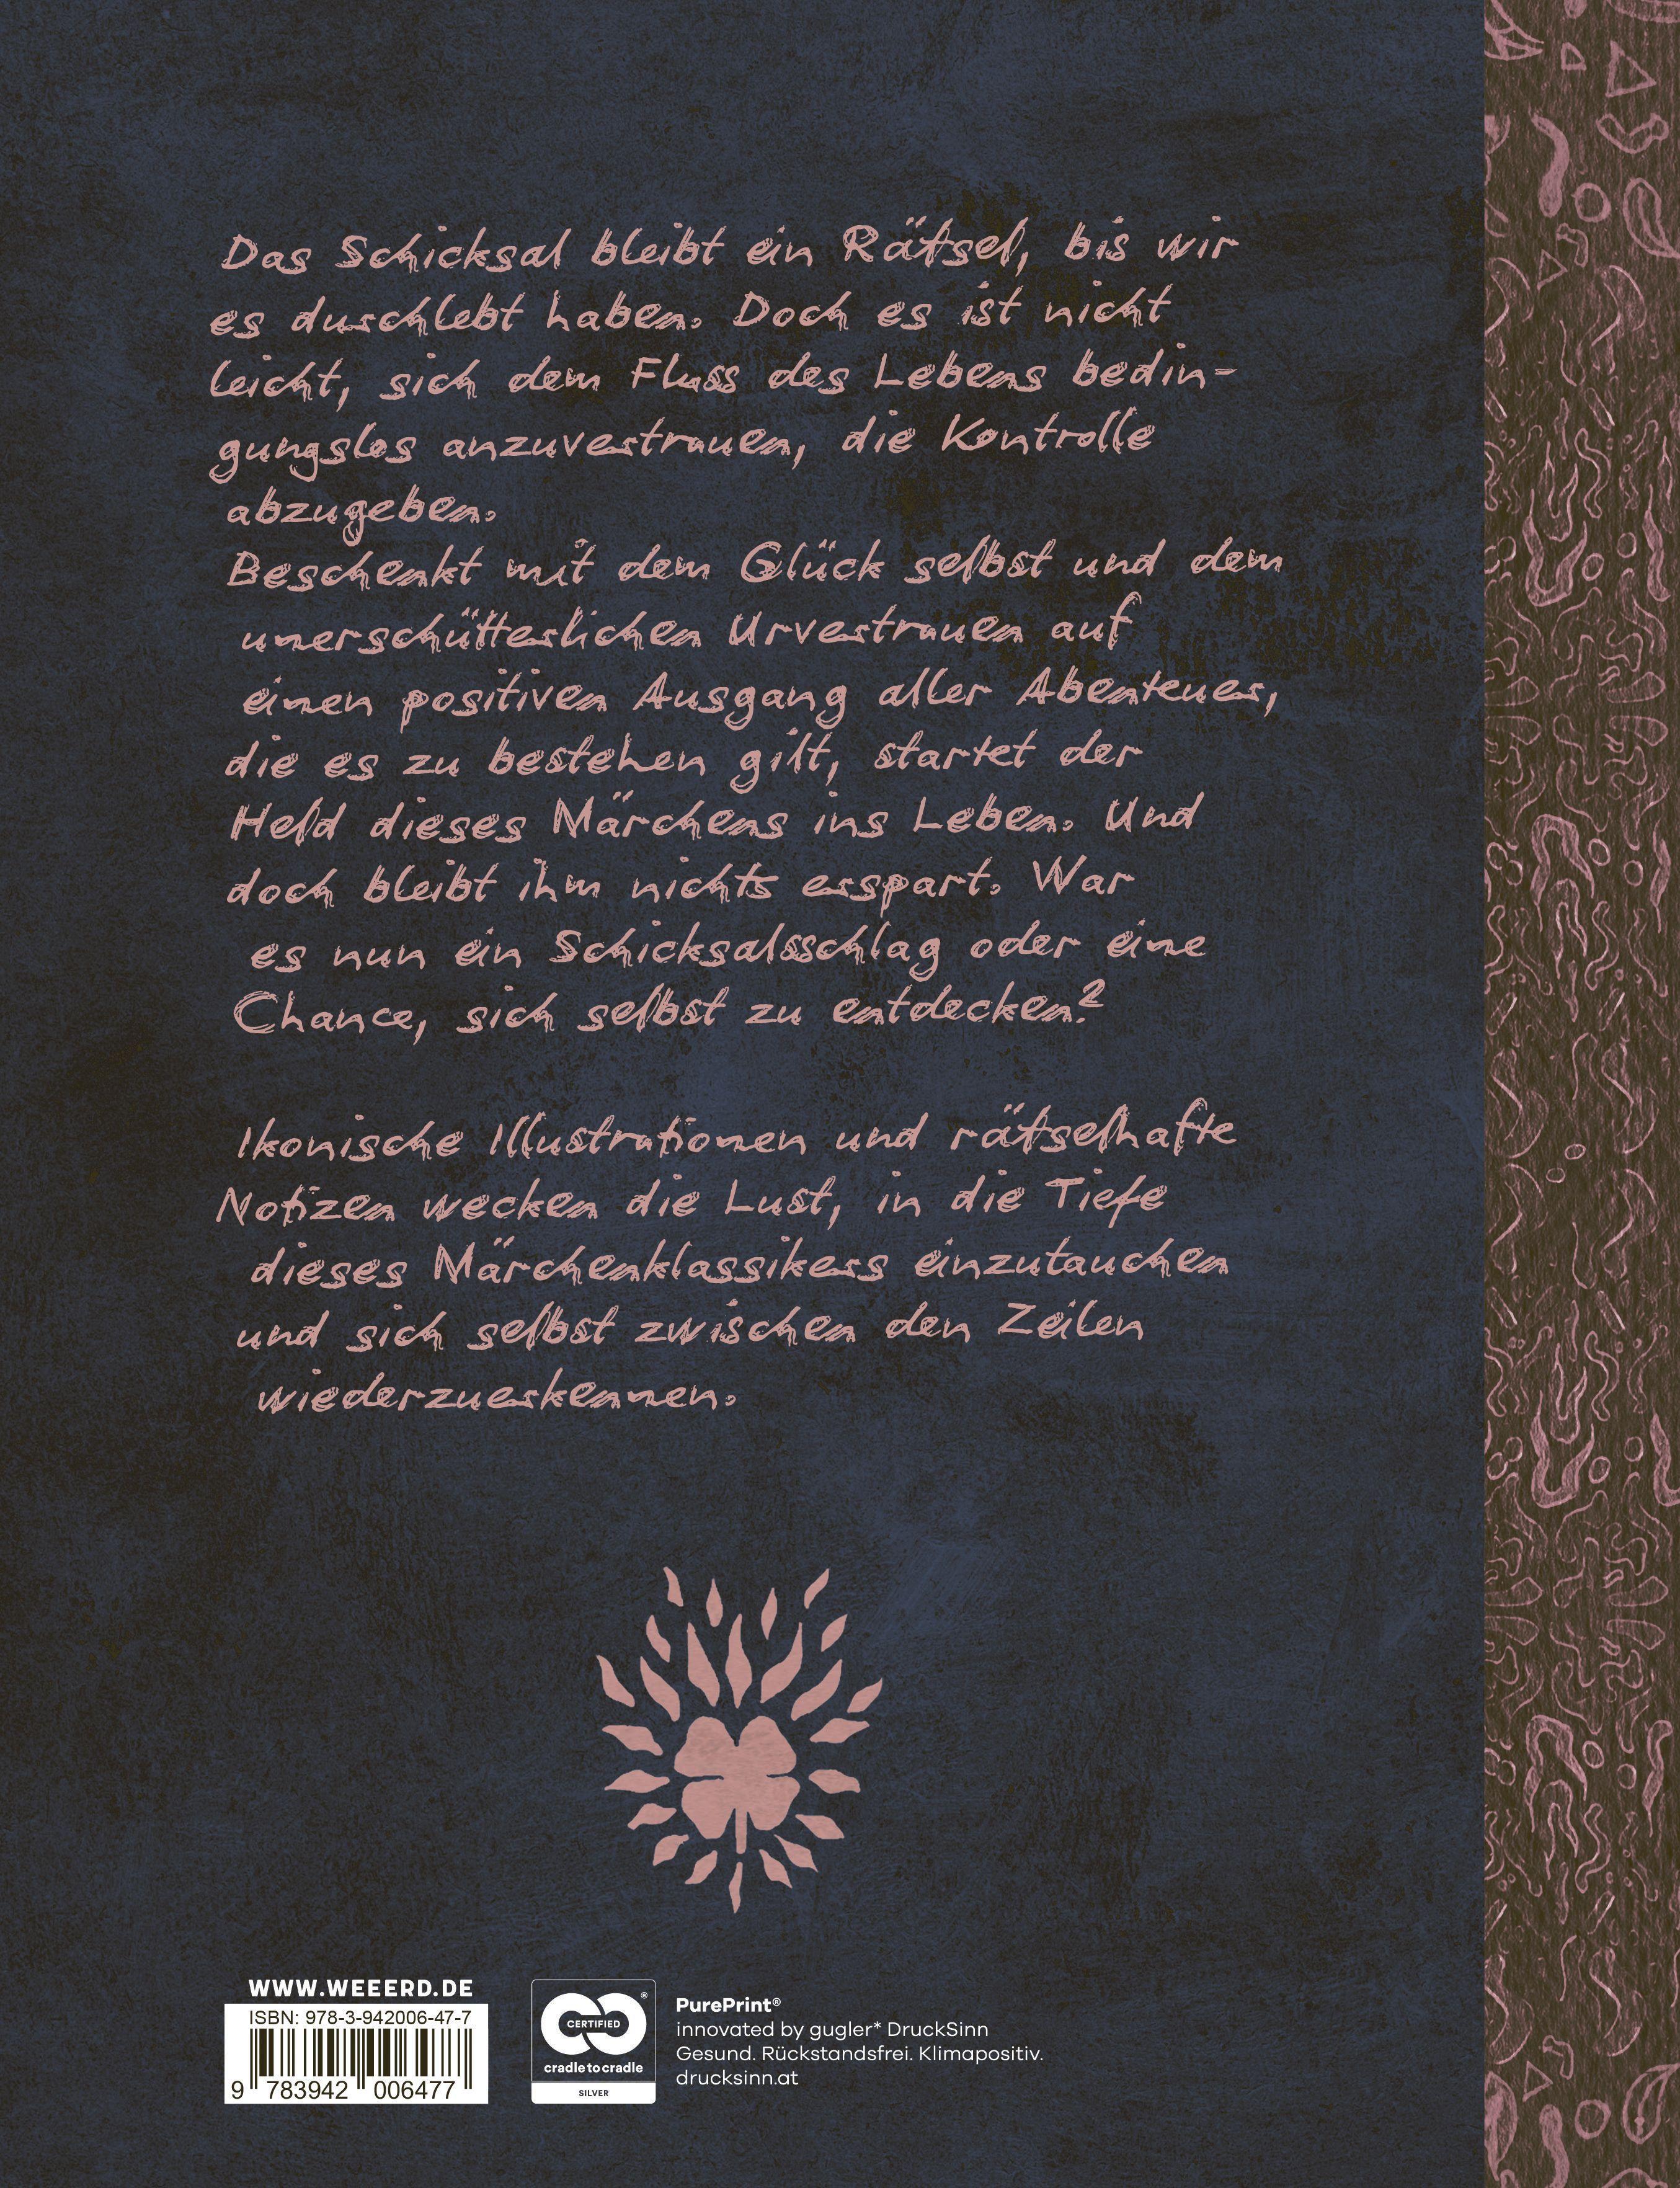 Das Schicksal bleibt ein Rätsel, bis wir
es durchlebt haben. Doch es ist nicht
leicht, sich dem Fluss des Lebens bedin-
gungslos anzuvertrauen, die Kontrolle
abzugeben.
Beschenkt mit dem Glück selbst und dem
unerschütterlichen Urvertrauen auf
einen positiven Ausgang aller Abenteuer,
die es zu bestehen gilt, startet der
Held dieses Märchens ins Leben. Und
doch bleibt ihm nichts erspart. War
es nun ein Schicksalsschlag oder eine
Chance, sich selbst zu entdecken?
Ikonische Illustrationen und rätselhafte
Notizen wecken die Lust, in die Tiefe
dieses Märchenklassikers einzutauchen
und sich selbst zwischen den Zeilen
wiederzuerkennen.
WWW.WEEERD.DE
ISBN: 978-3-942006-47-7
9 783942 006477
CERTIFIED
®
cradle to cradle
SILVER
PurePrint®
innovated by gugler* DruckSinn
Gesund. Rückstandsfrei. Klimapositiv.
drucksinn.at